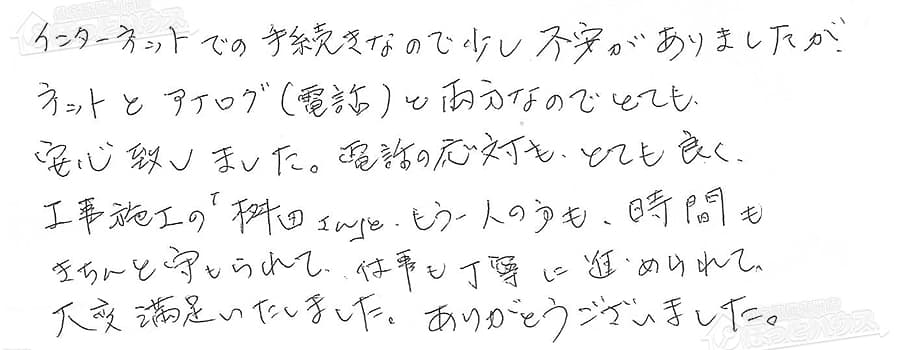 インターネットでの手続きなので少し不安がありましたが、
ネットとアナログ(電話)と両方なのでとても、
安心致しました。電話の応対も、とても良く、
工事施工の「桝田 もう一人の方も、時間も
きちんと守もられて、仕事も丁寧に進められて、
大変満足いたしました。ありがとうございました。